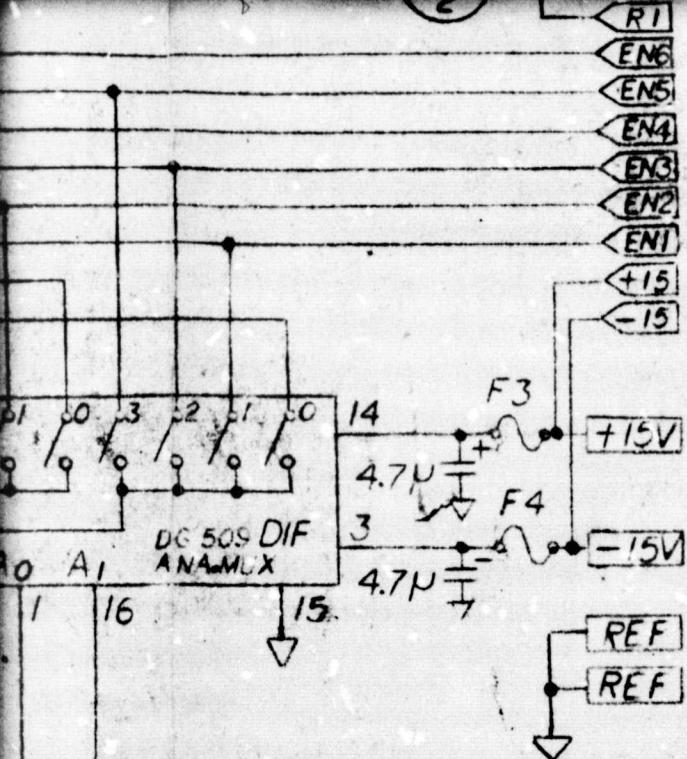 2
R1
EN6
EN5
EN4
EN3
EN2
EN1
+15
-15
1 0 3 2 1 0 14
F3
+15V
+
4.7µ
F4
DG 509 DIF 3
ANA.MUX
-15V
-
A0 A1
4.7µ
1 16 15
REF
REF